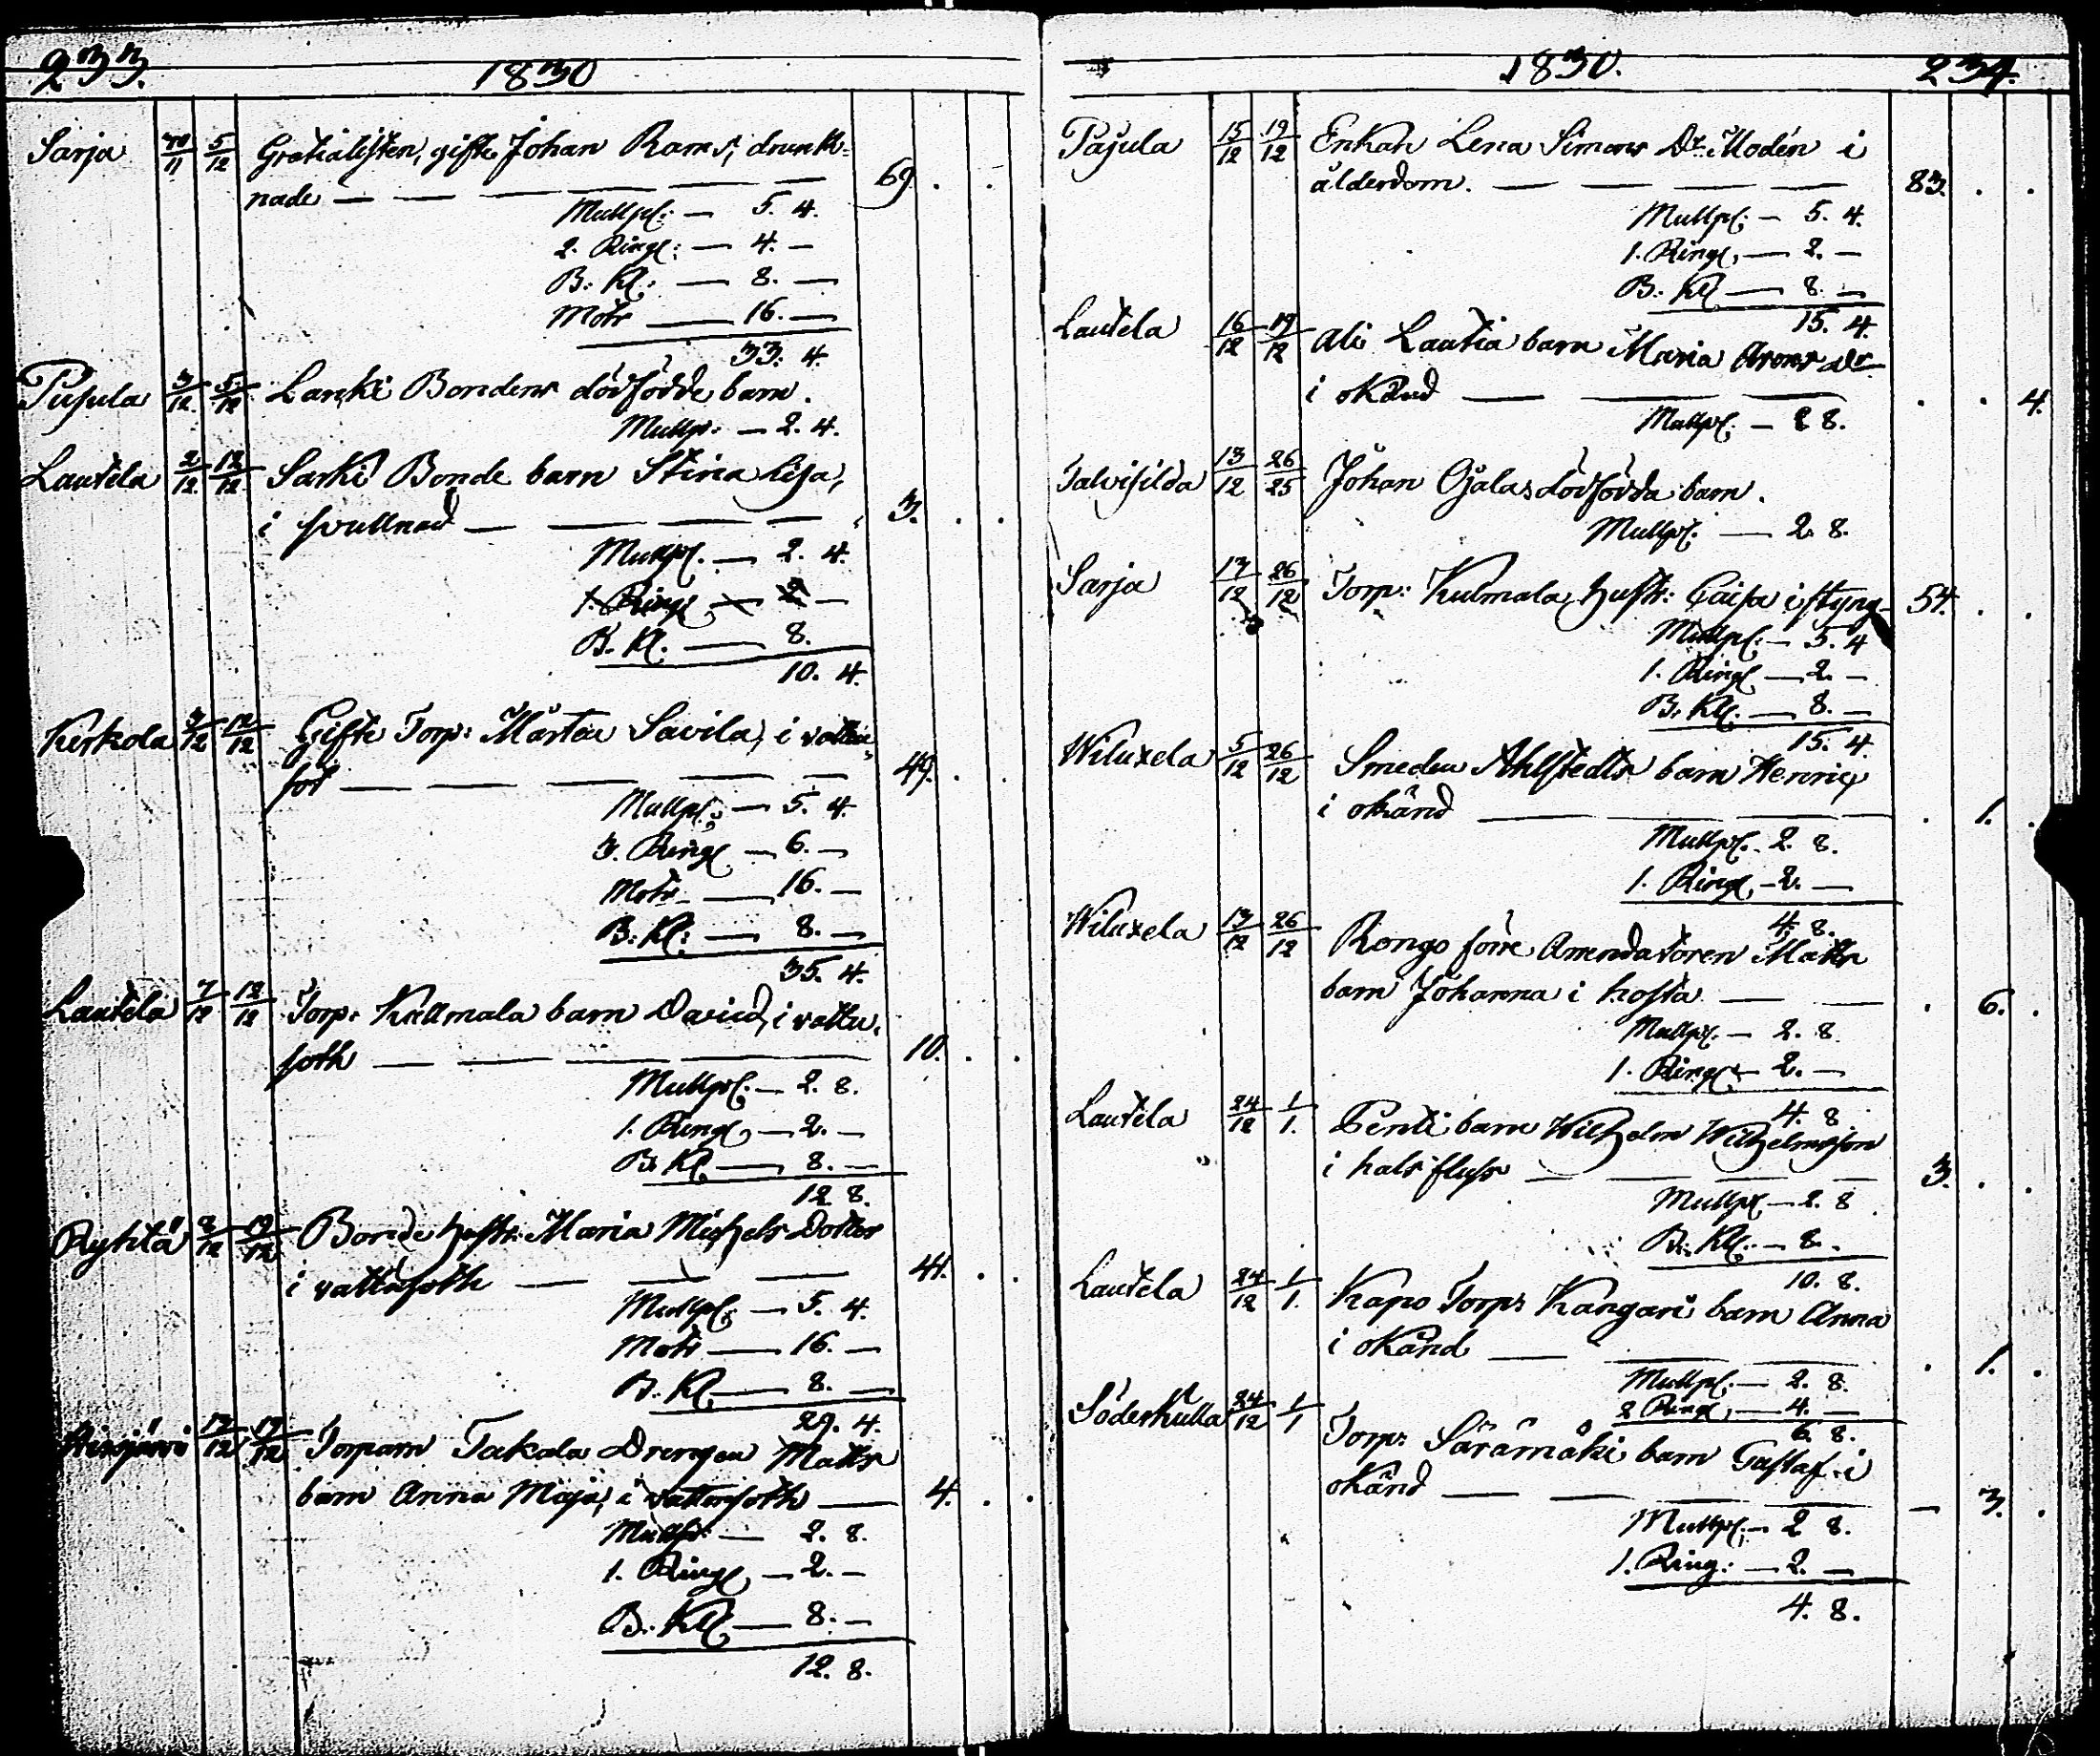 233.
1830
Sarja 30/11 5/12 Gratialisten, gifte Johan Rams, drunk-
nade — — — — — 69. . .
Mullpl: — 5. 4.
2. Ringl: — 4. —
B: Kl: — 8. —
Motr — 16. —
33. 4.
Pujula 3/12 5/12 Lanki Bondens dödfödde barn.
Mullp: — 2. 4.
Lautela 2/12 12/12 Sarki Bonde barn Stina Lisa,
i svullnad — — — — 3. . .
Mullpl. — 2. 4.
1. Ringl — 2 —
B. Kl. — 8.
10. 4.
Kirkola 3/12 12/12 Gifte Torp: Mårten Savila, i vattu-
sot — — — — — 49. . .
Mullpl: — 5. 4.
3. Ringl — 6. —
Motr — 16. —
B: Kl: — 8. —
35. 4.
Lautela 7/12 12/12 Torp: Kullmala barn David, i vattu-
soth — — — — — 10. . .
Mullpl. — 2. 8.
1. Ringl, — 2. —
B. Kl. — 8. —
12 8.
Ryhtä 8/12 19/12 Bonde hustr: Maria Michels Dotter
i vattusoth — — — 41. . .
Mullpl: — 5. 4.
Motr — 16. —
B. Kl. — 8. —
29. 4.
12/12 19/12 Torparn Takala Drengen Matts
barn Anna Maja, i vattusoth — 4. . .
Mullpl: — 2. 8.
1. Ringl, — 2. —
B. Kl — 8. —
12. 8.
1830.
234.
Pajula 15/12 19/12 Enkan Lena Simons Dr Modén i
ålderdom. — — — — 83. . .
Mullpl: — 5. 4.
1. Ringl, — 2. —
B: Kl — 8. —
15. 4.
Lautela 16/12 19/12 Ali Lautia barn Maria Arons dr
i okänd — — — . . 4.
Mullpl: — 2 8.
Talvisilda 13/12 26/25 Johan Ojalas dödfödda barn.
Mullpl. — 2. 8.
Sarja 17/12 26/12 Torp: Kulmala, hustr: Caisa i styng 54. . .
Mullpl: — 5. 4
1. Ringl — 2. —
B. Kl: — 8. —
15. 4.
Wiluxela 5/12 26/12 Smeden Ahlstedts barn Henric
i okänd — — — — . 1. .
Mullpl. — 2. 8.
1. Ringl, — 2. —
4. 8.
Wiluxela 17/12 26/12 Rongo förre Arrendatoren Matts
barn Johanna i hosta — — . 6. .
Mullpl. — 2. 8.
1. Ringl — 2. —
4. 8
Lautela 24/12 1/1. Penti barn Wilhelm Wilhelmsson
i halsfluss — — — — 3. . .
Mullpl — 2. 8
B. Kl: — 8. .
10. 8.
Lautela 24/12 1/1. Kapo Torp: Kangari barn Anna
i okänd — — — . 1. .
Mullpl: — 2. 8.
2 Ringl, — 4. —
6. 8.
Söderkulla 24/12 1/1 Torp: Särämäki barn Gustaf i
okänd — — — — — 3. .
Mullpl: — 2 8.
1. Ring: — 2. —
4. 8.